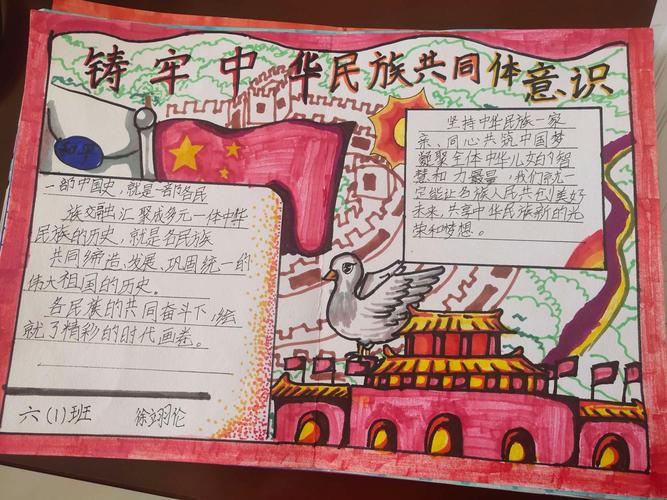 铸牢中华民族共同体意识
和平
一部中国史，就是一部各民
族交融汇聚成多元一体中华
民族的历史，就是各民族
共同缔造、发展、巩固统一的
伟大祖国的历史。
各民族的共同奋斗下，绘
就了精彩的时代画卷。
六(1)班 徐翊伦
坚持中华民族一家
亲、同心共筑中国梦
凝聚全体中华儿女的智
慧和力量，我们就一
定能让各族人民共创美好
未来，共享中华民族新的光
荣和梦想。